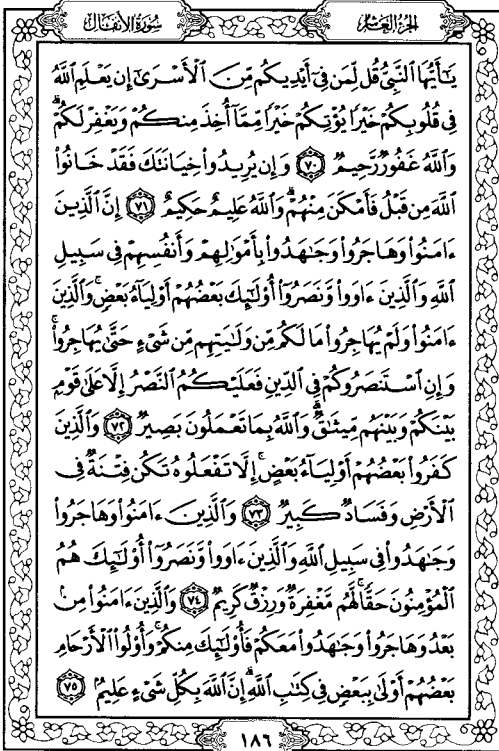 الجزء العاشر
سورة الأنفال
يَٰٓأَيُّهَا ٱلنَّبِيُّ قُل لِّمَن فِىٓ أَيْدِيكُم مِّنَ ٱلْأَسْرَىٰٓ إِن يَعْلَمِ ٱللَّهُ
فِى قُلُوبِكُمْ خَيْرًا يُؤْتِكُمْ خَيْرًا مِّمَّآ أُخِذَ مِنكُمْ وَيَغْفِرْ لَكُمْ ۗ
وَٱللَّهُ غَفُورٌ رَّحِيمٌ ٧٠ وَإِن يُرِيدُوا۟ خِيَانَتَكَ فَقَدْ خَانُوا۟
ٱللَّهَ مِن قَبْلُ فَأَمْكَنَ مِنْهُمْ ۗ وَٱللَّهُ عَلِيمٌ حَكِيمٌ ٧١ إِنَّ ٱلَّذِينَ
ءَامَنُوا۟ وَهَاجَرُوا۟ وَجَٰهَدُوا۟ بِأَمْوَٰلِهِمْ وَأَنفُسِهِمْ فِى سَبِيلِ
ٱللَّهِ وَٱلَّذِينَ ءَاوَوا۟ وَّنَصَرُوٓا۟ أُو۟لَٰٓئِكَ بَعْضُهُمْ أَوْلِيَآءُ بَعْضٍ ۚ وَٱلَّذِينَ
ءَامَنُوا۟ وَلَمْ يُهَاجِرُوا۟ مَا لَكُم مِّن وَلَٰيَتِهِم مِّن شَىْءٍ حَتَّىٰ يُهَاجِرُوا۟ ۚ
وَإِنِ ٱسْتَنصَرُوكُمْ فِى ٱلدِّينِ فَعَلَيْكُمُ ٱلنَّصْرُ إِلَّا عَلَىٰ قَوْمٍۭ
بَيْنَكُمْ وَبَيْنَهُم مِّيثَٰقٌ ۗ وَٱللَّهُ بِمَا تَعْمَلُونَ بَصِيرٌ ٧٢ وَٱلَّذِينَ
كَفَرُوا۟ بَعْضُهُمْ أَوْلِيَآءُ بَعْضٍ ۚ إِلَّا تَفْعَلُوهُ تَكُن فِتْنَةٌ فِى
ٱلْأَرْضِ وَفَسَادٌ كَبِيرٌ ٧٣ وَٱلَّذِينَ ءَامَنُوا۟ وَهَاجَرُوا۟
وَجَٰهَدُوا۟ فِى سَبِيلِ ٱللَّهِ وَٱلَّذِينَ ءَاوَوا۟ وَّنَصَرُوٓا۟ أُو۟لَٰٓئِكَ هُمُ
ٱلْمُؤْمِنُونَ حَقًّا ۚ لَّهُم مَّغْفِرَةٌ وَرِزْقٌ كَرِيمٌ ٧٤ وَٱلَّذِينَ ءَامَنُوا۟ مِنۢ
بَعْدُ وَهَاجَرُوا۟ وَجَٰهَدُوا۟ مَعَكُمْ فَأُو۟لَٰٓئِكَ مِنكُمْ ۚ وَأُو۟لُوا۟ ٱلْأَرْحَامِ
بَعْضُهُمْ أَوْلَىٰ بِبَعْضٍ فِى كِتَٰبِ ٱللَّهِ ۗ إِنَّ ٱللَّهَ بِكُلِّ شَىْءٍ عَلِيمٌۢ ٧٥
١٨٦